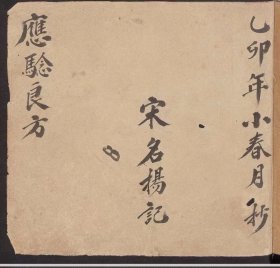 乙卯年小春月抄
宋名楊記
應驗良方